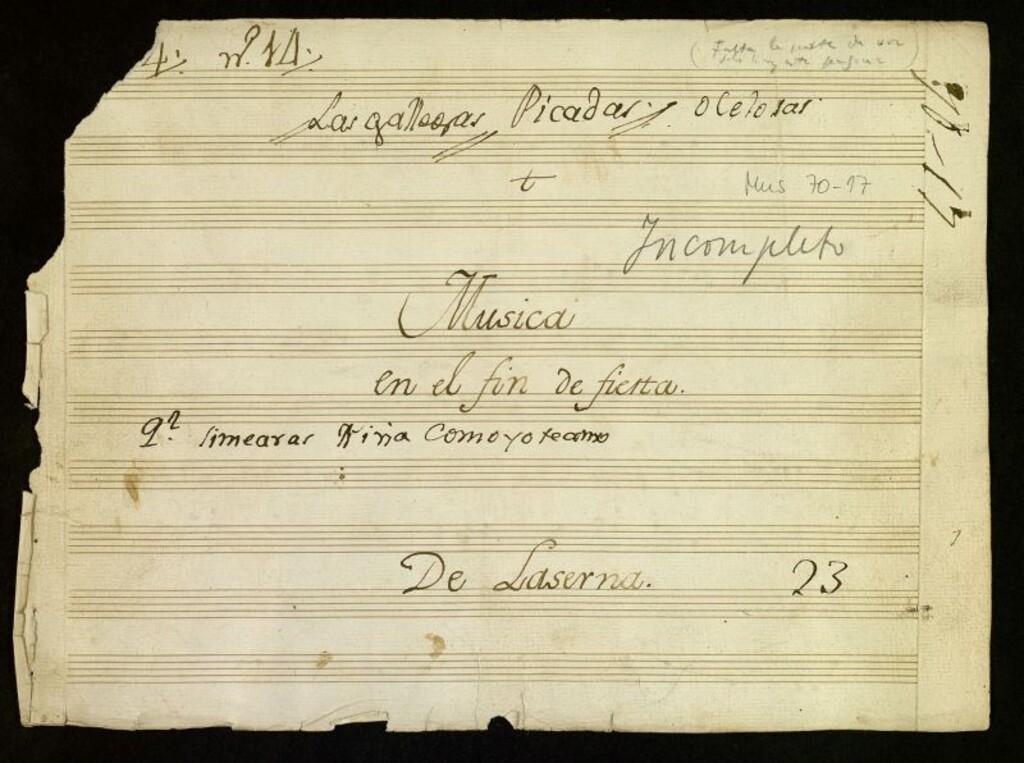 4. nº. 14.
(Falta la parte de voz
70-17
Las gallegas Picadas, o Celosas
t
Mus 70-17
Incompleto
Musica
en el fin de fiesta.
simearas Niña Comoyoteamo
De Laserna. 23